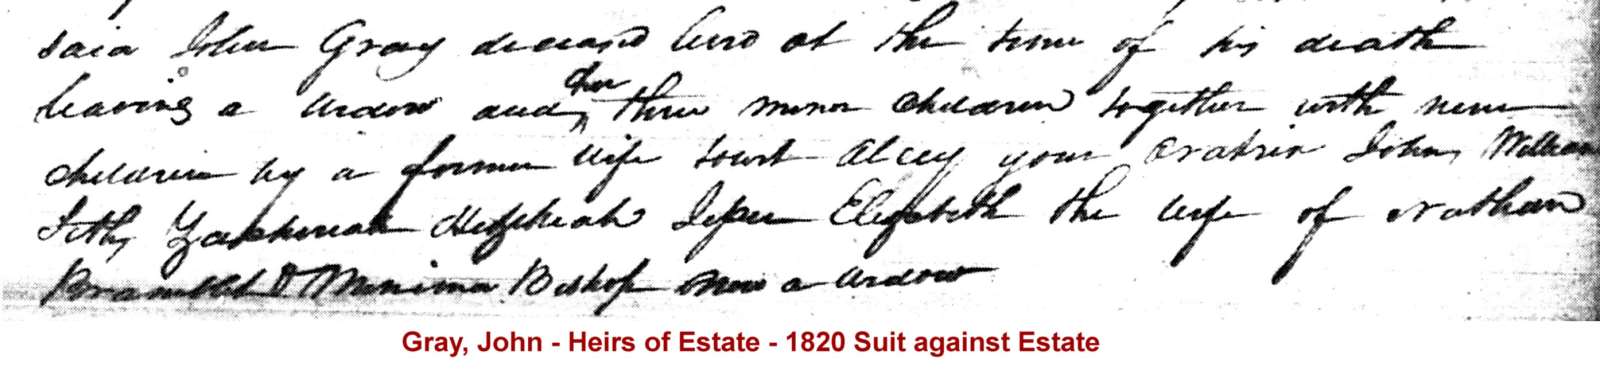 said John Gray deceased lived at the time of his death
leaving a widow and three minor children together with nine
children by a former wife towit Alcey your Oratrix John, William
Seth, Zachariah Hezekiah Jesse Elizabeth the wife of Nathan
Bramblet & Bishop now a widow
Gray, John - Heirs of Estate - 1820 Suit against Estate